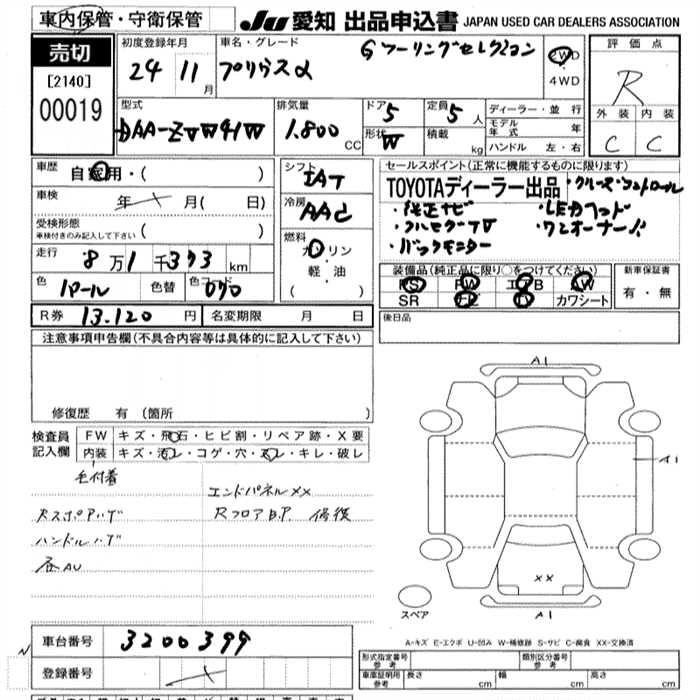 車内保管・守衛保管 JU 愛知 出品申込書 JAPAN USED CAR DEALERS ASSOCIATION
売切
[2140]
00019
初度登録年月 24 11月
車名・グレード Gツーリングセレクション
プリウスα
2WD
・
4WD
評価点
R
外装 内装
C C
型式 DAA-ZVW41W
排気量 1.800 CC
ドア 5
形状 W
定員 5人
積載 kg
ディーラー・並行
モデル年式 年
ハンドル 左・右
車歴 自家用・( )
車検 年 月( 日)
受検形態
車検付きのみ記入して下さい ( )
走行 8万1千393km
色 パール 色替 色コード 070
シフト IAT
冷房 AAC
燃料 ガソリン
・
軽・油
( )
セールスポイント(正常に機能するものに限ります)
TOYOTAディーラー出品 ・クルーズコントロール
・純正ナビ ・LEDヘッド
・フルセグTV ・ワンオーナー
・バックモニター
装備品(純正品に限り○をつけてください)
PS PW エアB AW
SR ナビ TV カワシート
新車保証書
有・無
R券 13.120円 名変期限 月 日
後日品
注意事項申告欄(不具合内容等は具体的に記入して下さい)
修復歴 有 (箇所 )
検査員記入欄 FW キズ・飛石・ヒビ割・リペア跡・X要
内装 キズ・汚レ・コゲ・穴・スレ・キレ・破レ
毛付着
エンドパネルXX
RフロアB.P. 修復
ハンドルハゲ
A1
A1
XX
A1
スペア
A-キズ E-エクボ U-凹み W-補修跡 S-サビ C-腐食 XX-交換済
車台番号 3200399
登録番号
形式指定番号 参考 類別区分番号 参考
車庫証明用 参考 長さ cm 幅 cm 高さ cm